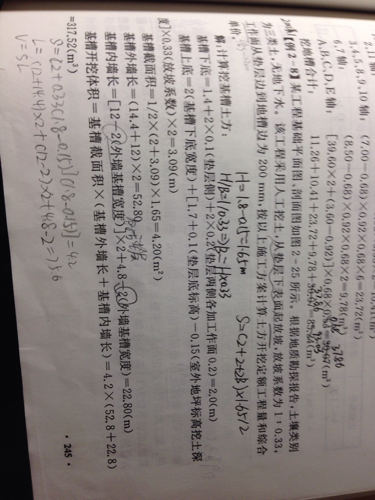 2.1轴:
3、4、5、8、9、10轴: (7.00-0.68)×0.92×0.68×6=23.72(m³)
6、7轴: (8.50-0.68)×0.92×0.68×2=9.78(m³)
A、B、C、D、E轴: [39.60×2+(3.60-0.92)]×0.68
挖地槽合计: 11.26+10.41+23.72+9.78+
【例2-8】某工程基础平面图、剖面图如图2-25所示。根据地质勘探报告,土壤类别
为三类土,无地下水。该工程采用人工挖土,从垫层下表面起放坡,放坡系数为1:0.33,
工作面从垫层边到地槽边为200mm,按以上施工方案计算土方开挖定额工程量和综合
单价。
H=1.8-0.15=1.65m
S=(2+2+2B)×1.65/2
解:计算挖基槽土方:
H/B=1/0.33=>B=H×0.33
基槽下底=1.4+2×0.1(垫层侧)+2×0.2(垫层两侧各加工作面0.2)=2.0(m)
基槽上底=2(基槽下底宽度)+[1.7+0.1(垫层底标高)-0.15(室外地坪标高挖土深
度]×0.33(放坡系数)×2=3.09(m)
基槽截面积=1/2×(2+3.09)×1.65=4.20(m²)
基槽外墙长=(14.4+12)×2=52.80
基槽内墙长=[12-2(外墙基槽宽度)]×2+4.8-2(外墙基槽宽度)=22.80(m)
基槽开挖体积=基槽截面积×(基槽外墙长+基槽内墙长)=4.2×(52.8+22.8)
=317.52(m³)
S=(2+0.33(1.8-0.15))(1.8-0.15)=4.2
L=(12+14.4)×2+(12-2)×2+4.8-2=75.6
V=SL
·245·